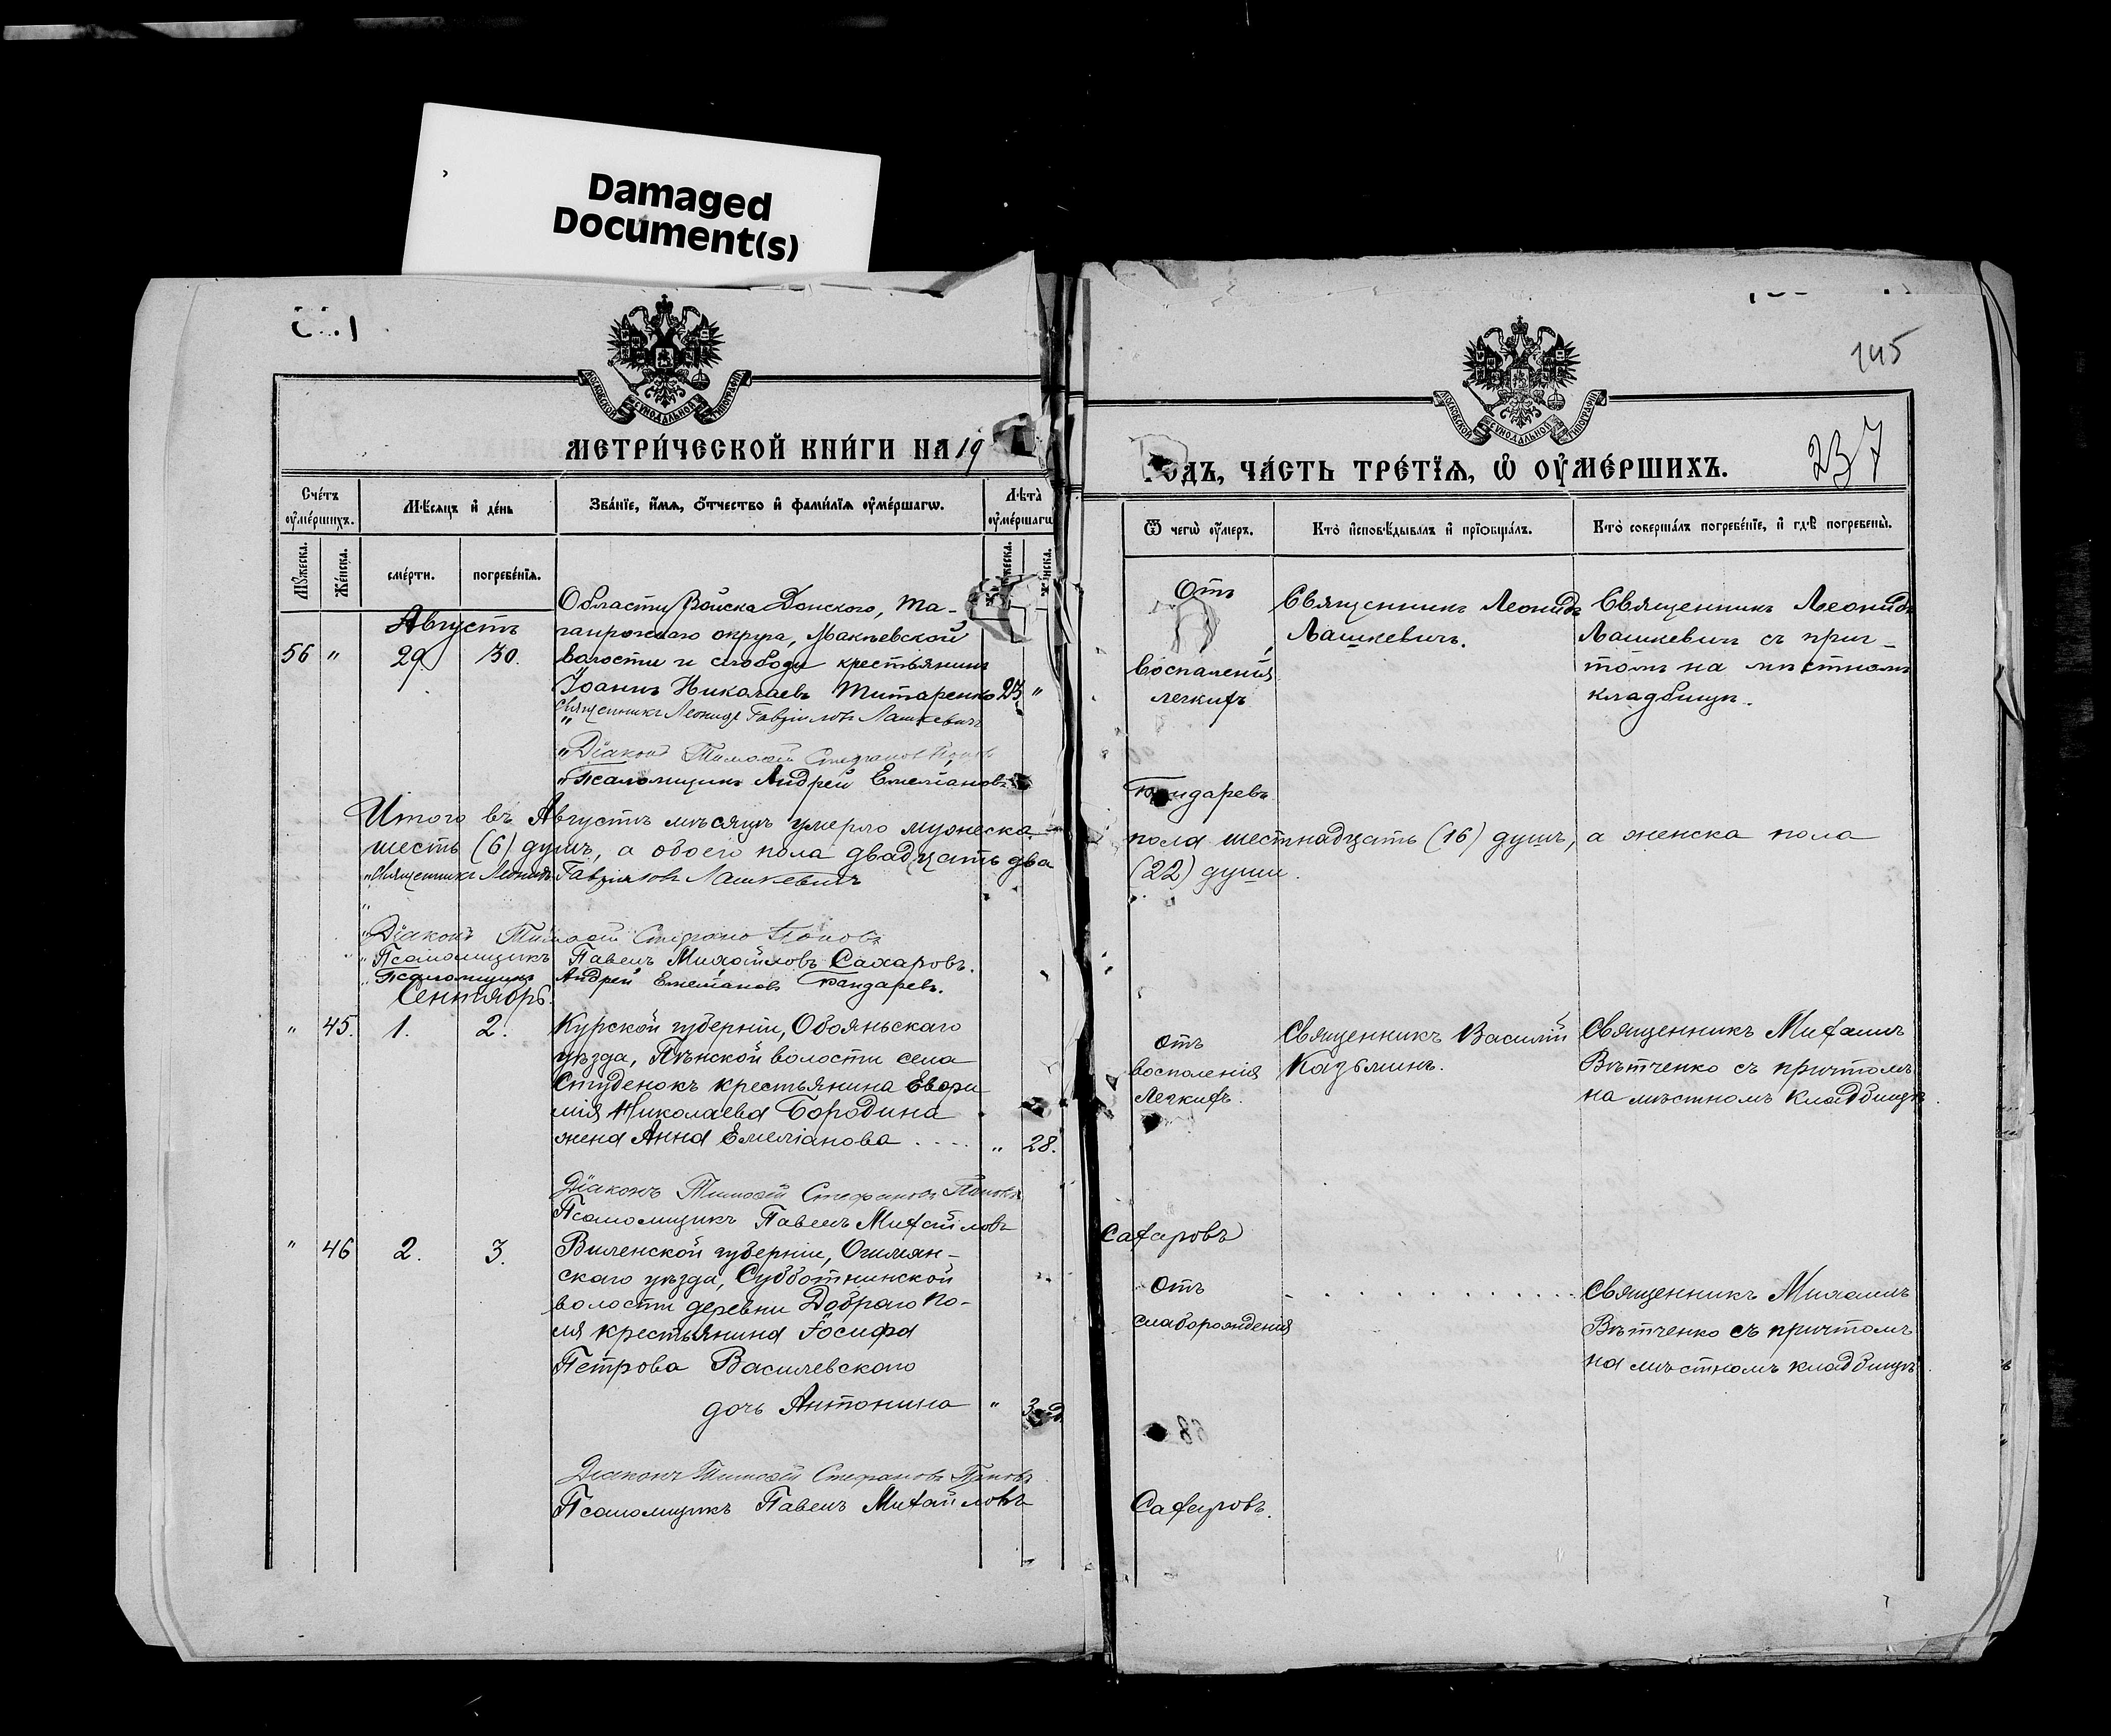 Damaged
Document(s)
145
МОСКОВСКОЙ СѴНОДАЛЬНОЙ ТИПОГРАФІИ
МОСКОВСКОЙ СѴНОДАЛЬНОЙ ТИПОГРАФІИ
МЕТРИ́ЧЕСКОЙ КНИ́ГИ НА 19
ОДЪ, ЧА́СТЬ ТРЕ́ТІѦ, Ѽ ОУ҆МЕ́РШИХЪ.
237
Сче́тъ ѹ҆ме́ршихъ.
Мѣ́сяцъ и҆ де́нь
Зва́нїе, и҆́мѧ, ѻ҆́тчество и҆ фами́лїѧ ѹ҆ме́ршагѡ.
Лѣта̀ ѹ҆ме́ршагѡ
Ѿ чегѡ̀ ѹ҆́меръ.
Кто̀ и҆сповѣ́дывалъ и҆ прїѻбща́лъ.
Кто̀ соверша́лъ погребе́нїе, и҆ гдѣ̀ погребены̀.
Мꙋ́жеска.
Же́нска.
сме́рти.
погребе́нїѧ.
Августъ
56 " 29 30.
Области Войска Донского, Та-
ганрожскаго округа, Макѣевской
волости и слободы крестьянинъ
Іоаннъ Николаевъ Титаренко 23 "
Отъ
воспаленія
легкихъ
Священникъ Леонидъ
Лашкевичъ.
Священникъ Леонидъ
Лашкевичъ съ прич-
томъ на мѣстномъ
кладбищѣ.
Священникъ Леонидъ Гавріиловъ Лашкевичъ
"Діаконъ Тимофей Стефановъ Поповъ
"Псаломщикъ Андрей Емеліановъ
Бондаревъ
Итого въ Августѣ мѣсяцѣ умерло мужеска
пола шестнадцать (16) душъ, а женска пола
шесть (6) душъ, а обоего пола двадцать два
(22) души.
"Священникъ Леонидъ Гавріиловъ Лашкевичъ
"Діаконъ Тимофей Стефановъ Поповъ
"Псаломщикъ Павелъ Михайловъ Сахаровъ.
"Псаломщикъ Андрей Емеліановъ Бондаревъ.
Сентябрь.
" 45. 1. 2.
Курской губерніи, Обояньскаго
уѣзда, Пѣнской волости села
Студенокъ крестьянина Евфи
мія Николаева Бородина
жена Анна Емеліанова . . . . " 28.
отъ
восполенія
Легкихъ.
Священникъ Василій
Казьминъ.
Священникъ Михаилъ
Вѣтченко съ причтомъ
на мѣстномъ кладбищѣ.
Діаконъ Тимофей Стефановъ Поповъ
Псаломщикъ Павелъ Михайловъ
Сахаровъ
" 46 2. 3.
Виленской губерніи, Ошмян-
скаго уѣзда, Субботнинской
волости деревни Добраго По-
ля крестьянина Іосифа
Петрова Василевскаго
дочь Антонина " 3
отъ
слаборожденія
Священникъ Михаилъ
Вѣтченко съ причтомъ
на мѣстномъ кладбищѣ.
Діаконъ Тимофей Стефановъ Поповъ
Псаломщикъ Павелъ Михайловъ
Сахаровъ.